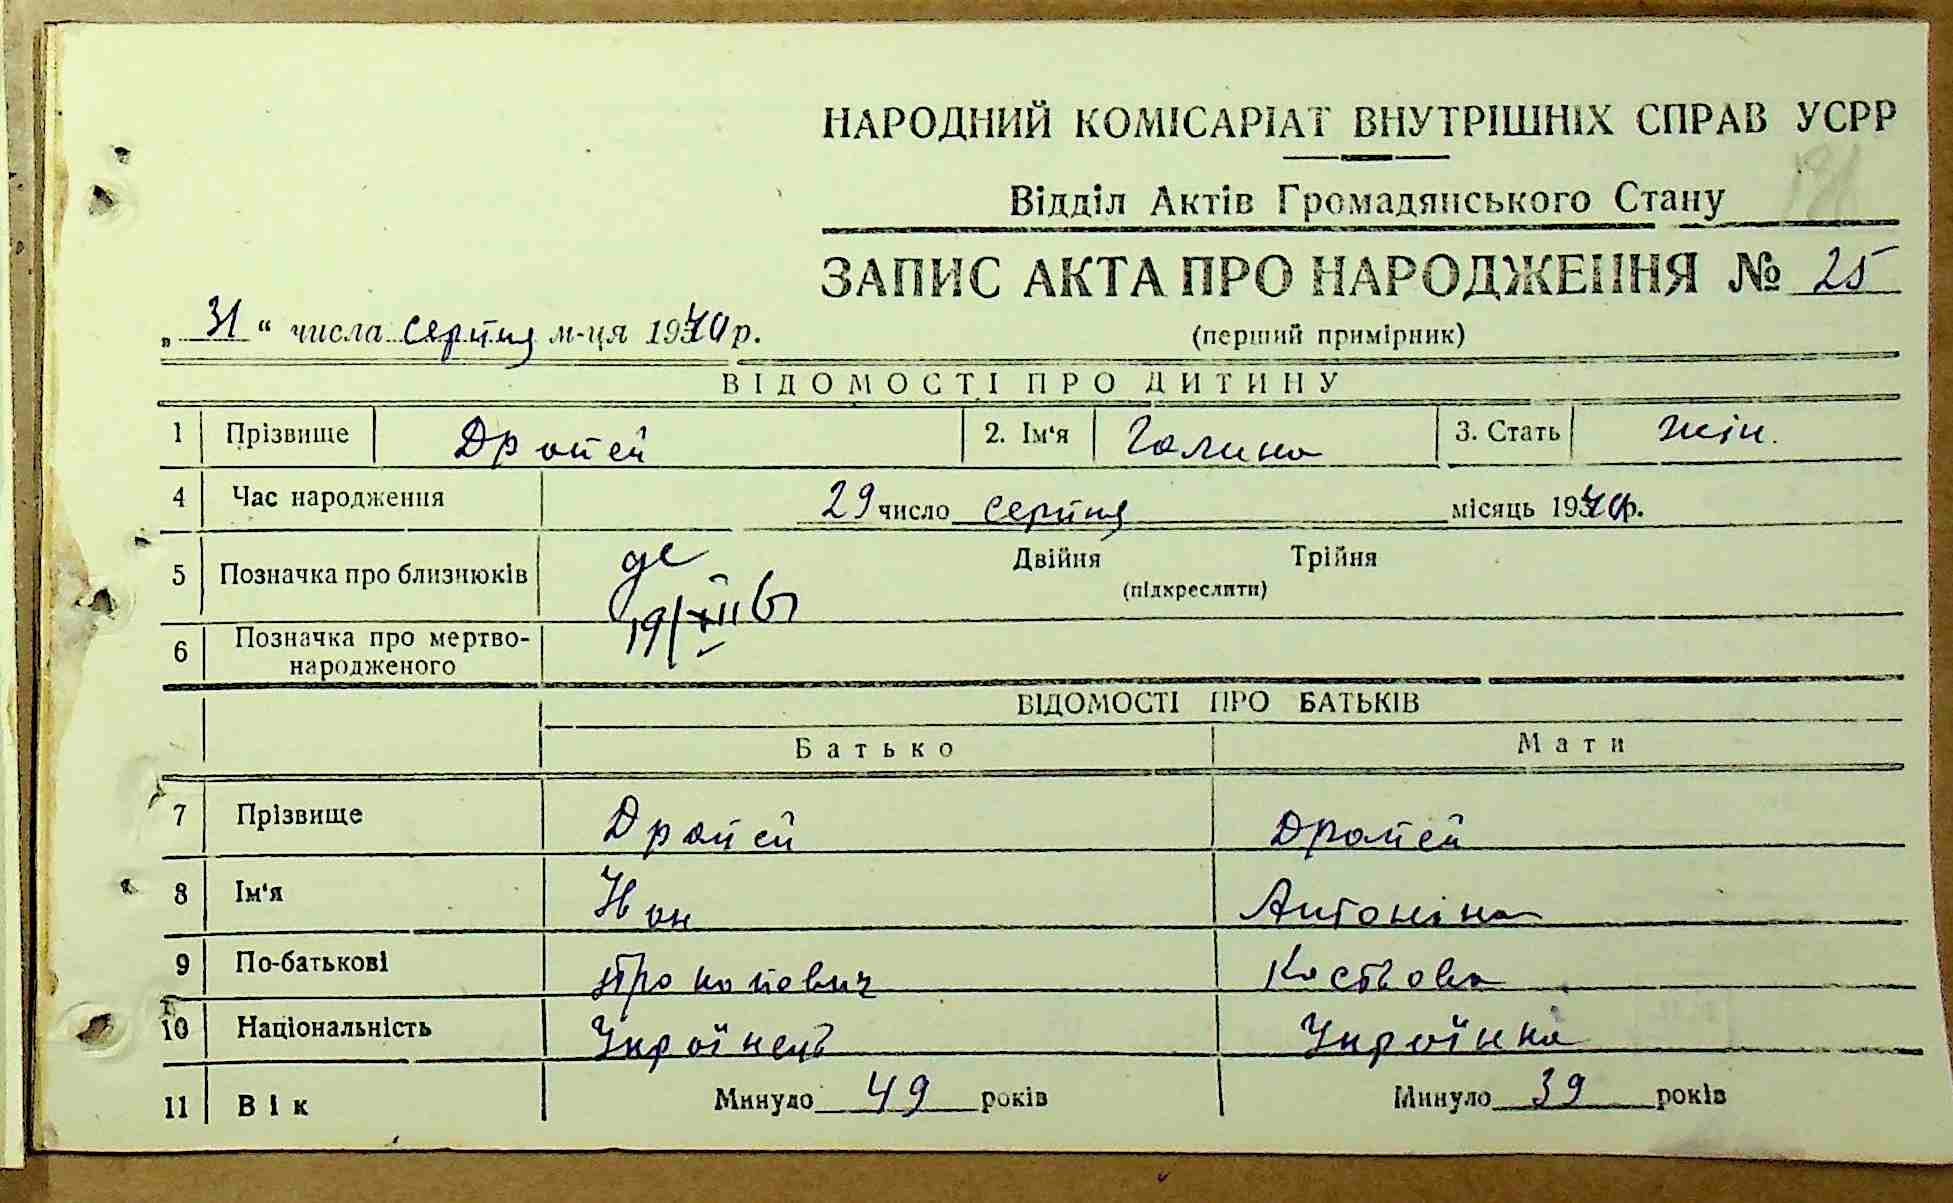 НАРОДНИЙ КОМІСАРІАТ ВНУТРІШНІХ СПРАВ УСРР
Відділ Актів Громадянського Стану
ЗАПИС АКТА ПРО НАРОДЖЕННЯ № 25
„ 31 “ числа серпня м-ця 1940 р.
(перший примірник)
ВІДОМОСТІ ПРО ДИТИНУ
1 Прізвище Дропей 2. Ім'я Галина 3. Стать жін.
4 Час народження 29 число серпня місяць 1940р.
5 Позначка про близнюків Двійня Трійня
(підкреслити)
19/XII 61
6 Позначка про мертво-
народженого
ВІДОМОСТІ ПРО БАТЬКІВ
Батько Мати
7 Прізвище Дропей Дропей
8 Ім'я Антоніна
9 По-батькові Прокопович
10 Національність Українець Українка
11 Вік Минуло 49 років Минуло 39 років